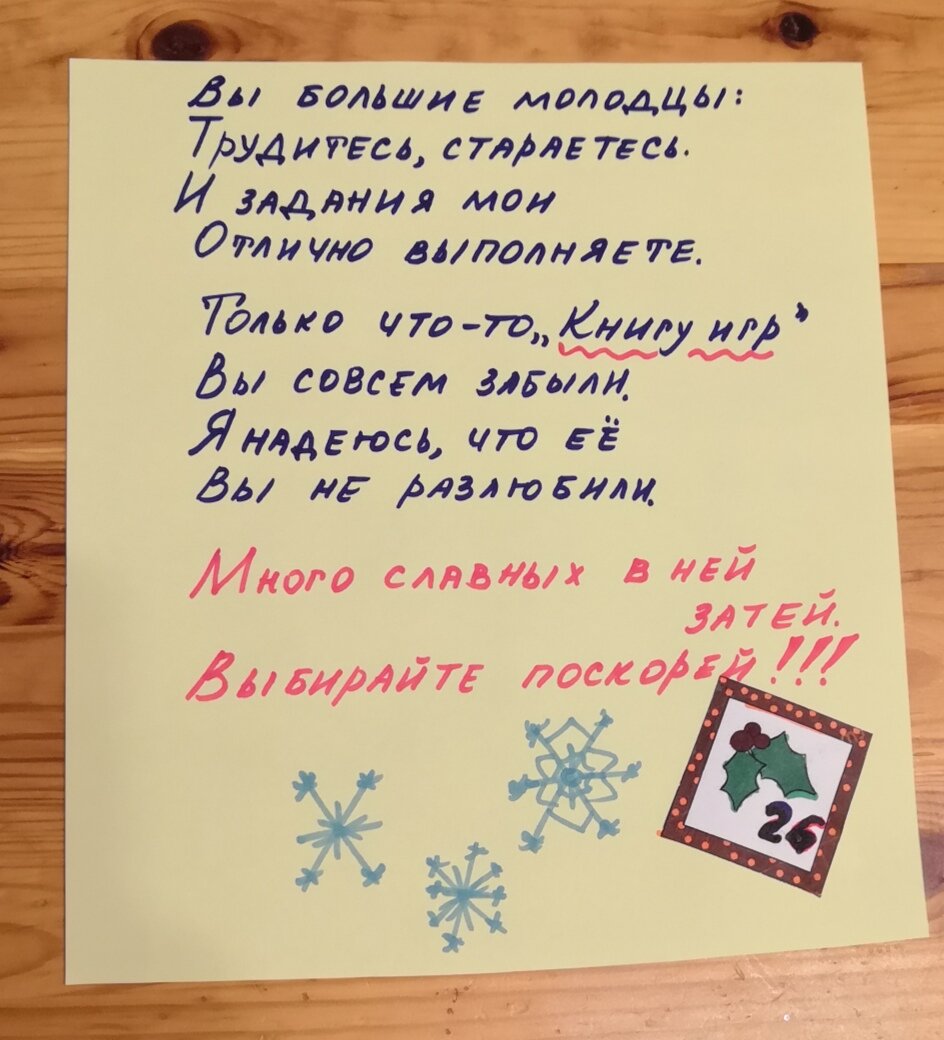 Вы большие молодцы:
Трудитесь, стараетесь.
И задания мои
Отлично выполняете.
Только что-то „Книгу игр”
Вы совсем забыли.
Я надеюсь, что её
Вы не разлюбили.
Много славных в ней
затей.
Выбирайте поскорей!!!
26